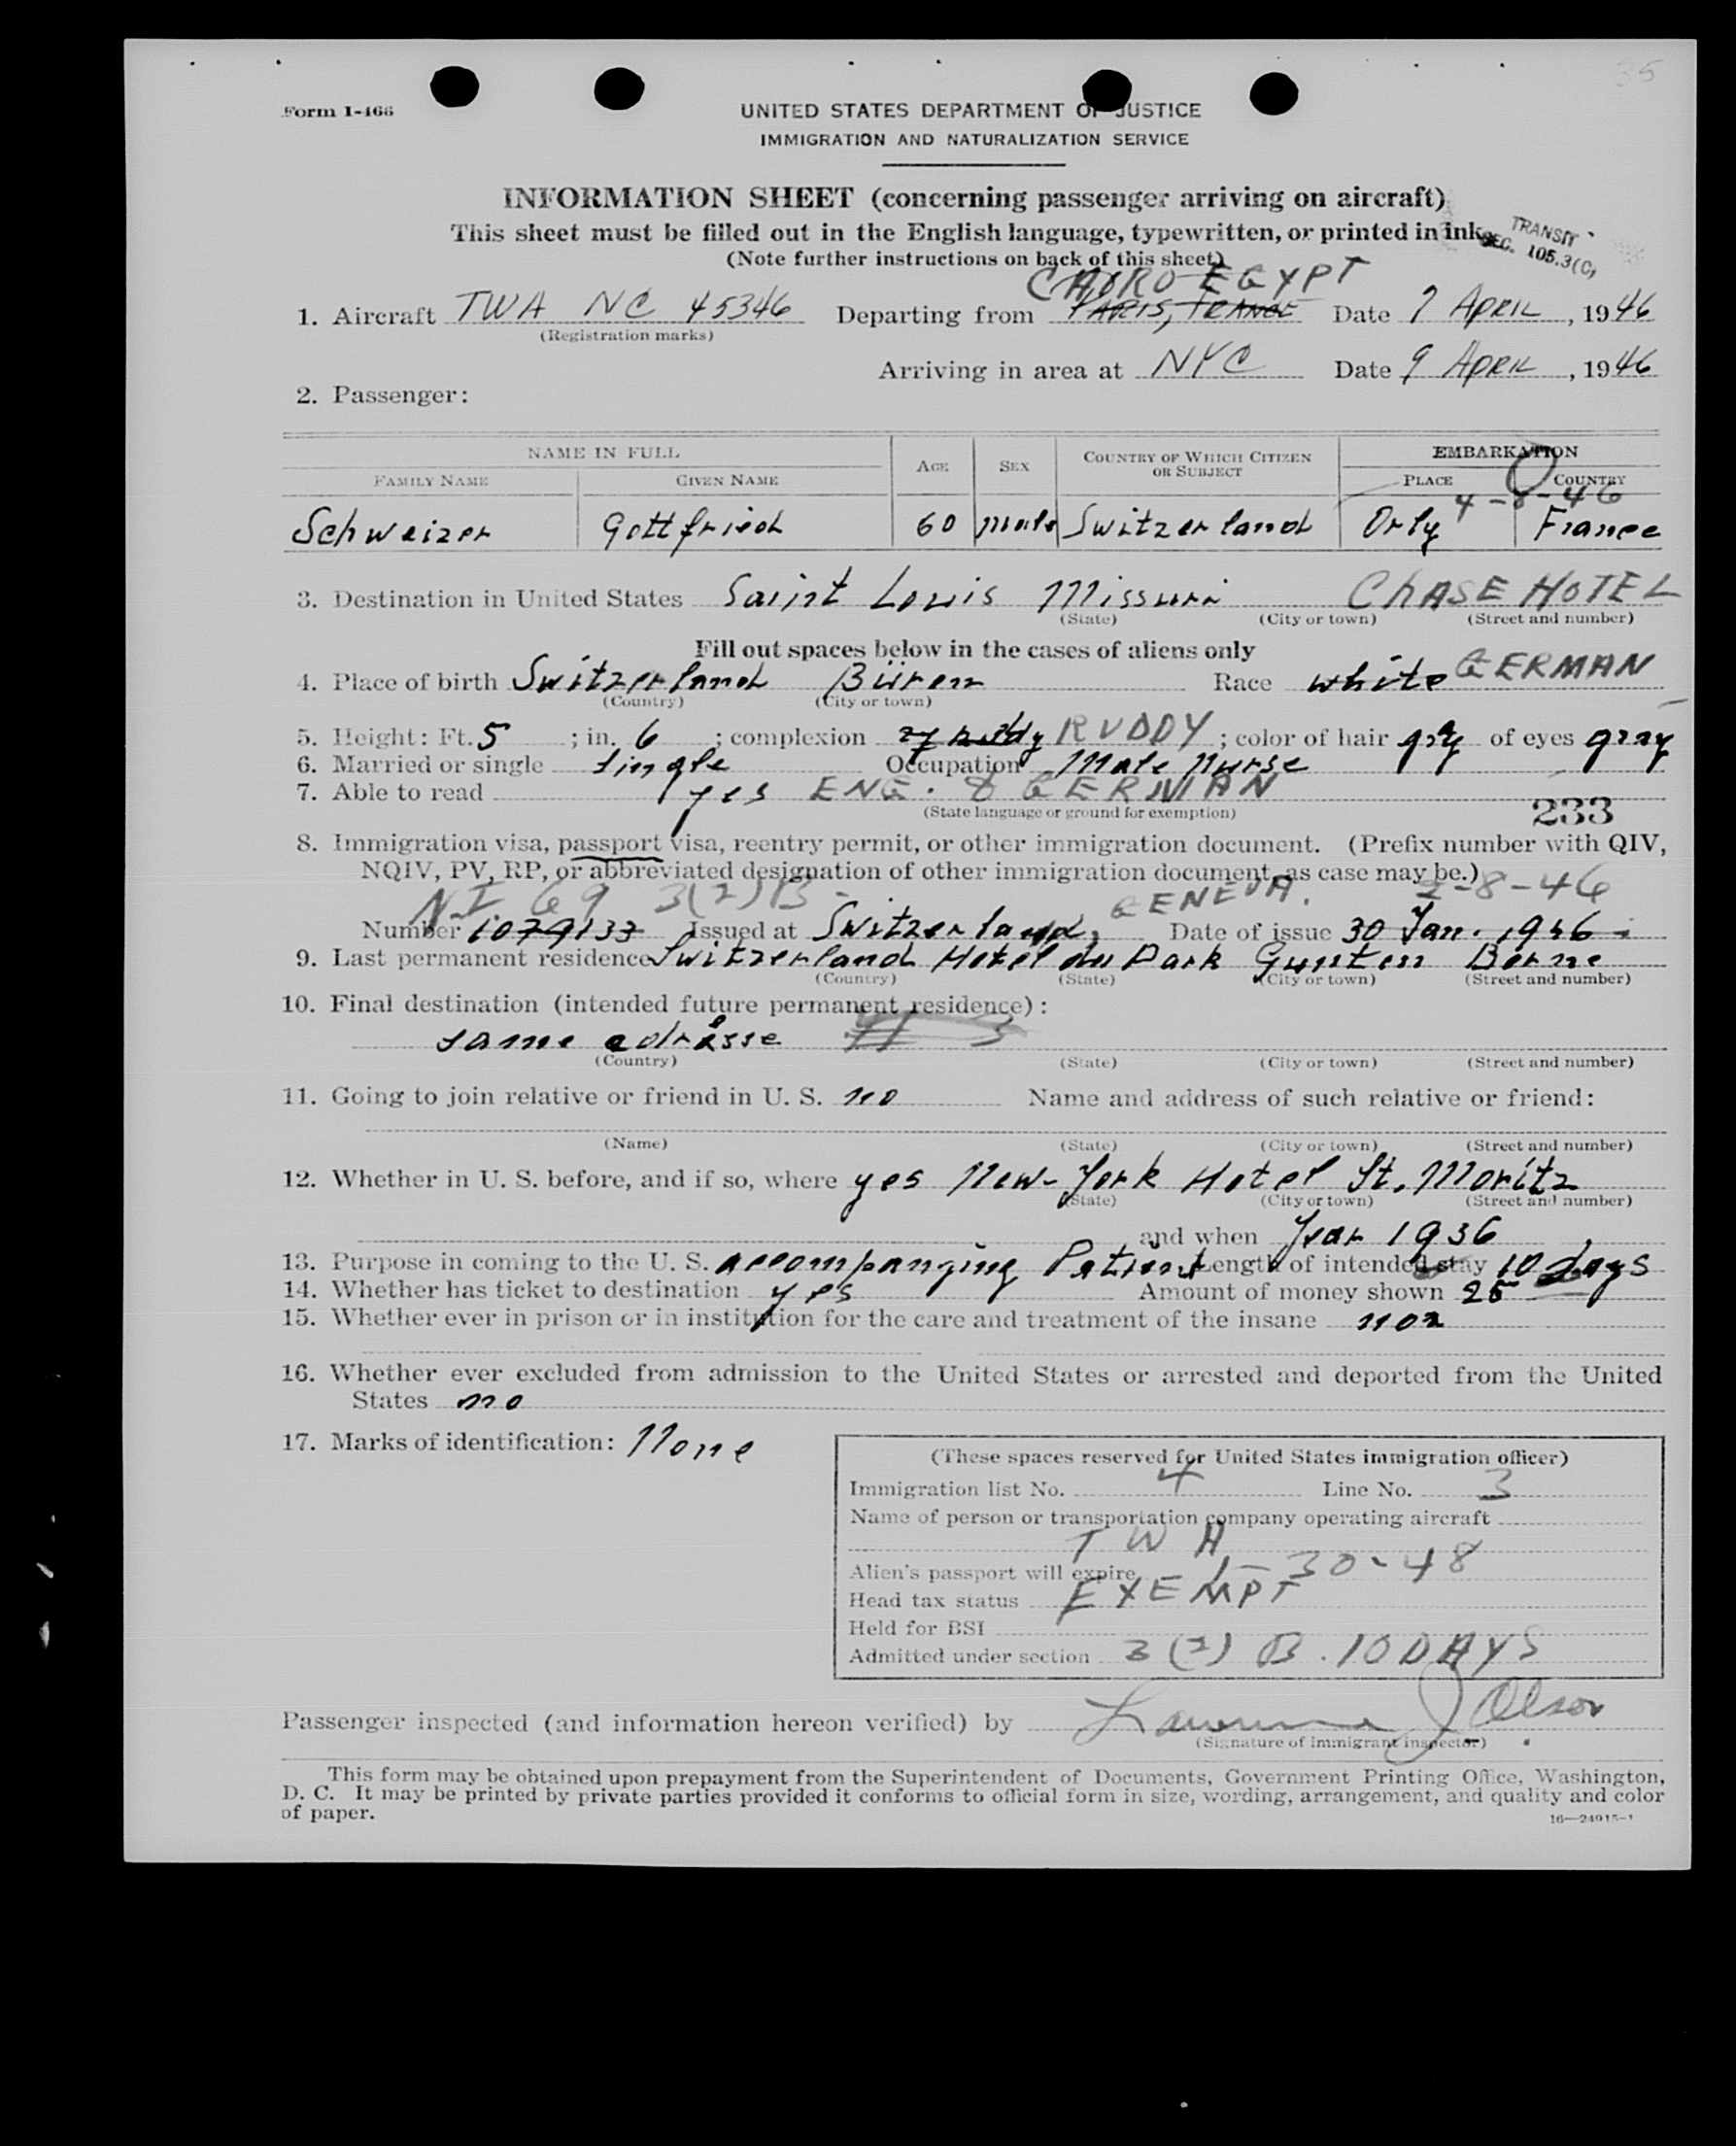 35
Form I-466
UNITED STATES DEPARTMENT OF JUSTICE
IMMIGRATION AND NATURALIZATION SERVICE
INFORMATION SHEET (concerning passenger arriving on aircraft)
This sheet must be filled out in the English language, typewritten, or printed in ink.
TRANSIT
SEC. 105.3(C)
(Note further instructions on back of this sheet)
CAIRO EGYPT
1. Aircraft TWA NC 45346 Departing from PARIS, FRANCE Date 7 APRIL, 1946
(Registration marks)
Arriving in area at NYC Date 9 APRIL, 1946
2. Passenger:
NAME IN FULL AGE SEX COUNTRY OF WHICH CITIZEN OR SUBJECT EMBARKATION
FAMILY NAME GIVEN NAME PLACE COUNTRY
4-8-46
Schweizer Gottfried 60 male Switzerland Orly France
3. Destination in United States Saint Louis Missouri CHASE HOTEL
(State) (City or town) (Street and number)
Fill out spaces below in the cases of aliens only
4. Place of birth Switzerland Büren Race white GERMAN
(Country) (City or town)
5. Height: Ft. 5; in. 6; complexion RUDDY; color of hair gry of eyes gray
6. Married or single single Occupation Male Nurse
7. Able to read yes ENG. & GERMAN
(State language or ground for exemption)
233
8. Immigration visa, passport visa, reentry permit, or other immigration document. (Prefix number with QIV,
NQIV, PV, RP, or abbreviated designation of other immigration document, as case may be.)
N.I 69 3(2)B - GENEVA. 2-8-46
Number 1079133 Issued at Switzerland, Date of issue 30 Jan. 1946
9. Last permanent residence Switzerland Hotel du Park Gunten Berne
(Country) (State) (City or town) (Street and number)
10. Final destination (intended future permanent residence):
same adrisse
(Country) (State) (City or town) (Street and number)
11. Going to join relative or friend in U. S. no Name and address of such relative or friend:
(Name) (State) (City or town) (Street and number)
12. Whether in U. S. before, and if so, where yes New-York Hotel St. Moritz
(State) (City or town) (Street and number)
and when Year 1936
13. Purpose in coming to the U. S. accompanying Patient Length of intended stay 10 days
14. Whether has ticket to destination yes Amount of money shown 25
15. Whether ever in prison or in institution for the care and treatment of the insane non
16. Whether ever excluded from admission to the United States or arrested and deported from the United
States no
17. Marks of identification: None
(These spaces reserved for United States immigration officer)
Immigration list No. 4 Line No. 3
Name of person or transportation company operating aircraft
TWA
Alien's passport will expire 1-30-48
Head tax status EXEMPT
Held for BSI
Admitted under section 3(2) B. 10 DAYS
Passenger inspected (and information hereon verified) by Lawrence J. Olson
(Signature of immigrant inspector)
This form may be obtained upon prepayment from the Superintendent of Documents, Government Printing Office, Washington,
D. C. It may be printed by private parties provided it conforms to official form in size, wording, arrangement, and quality and color
of paper.
16—24915-1